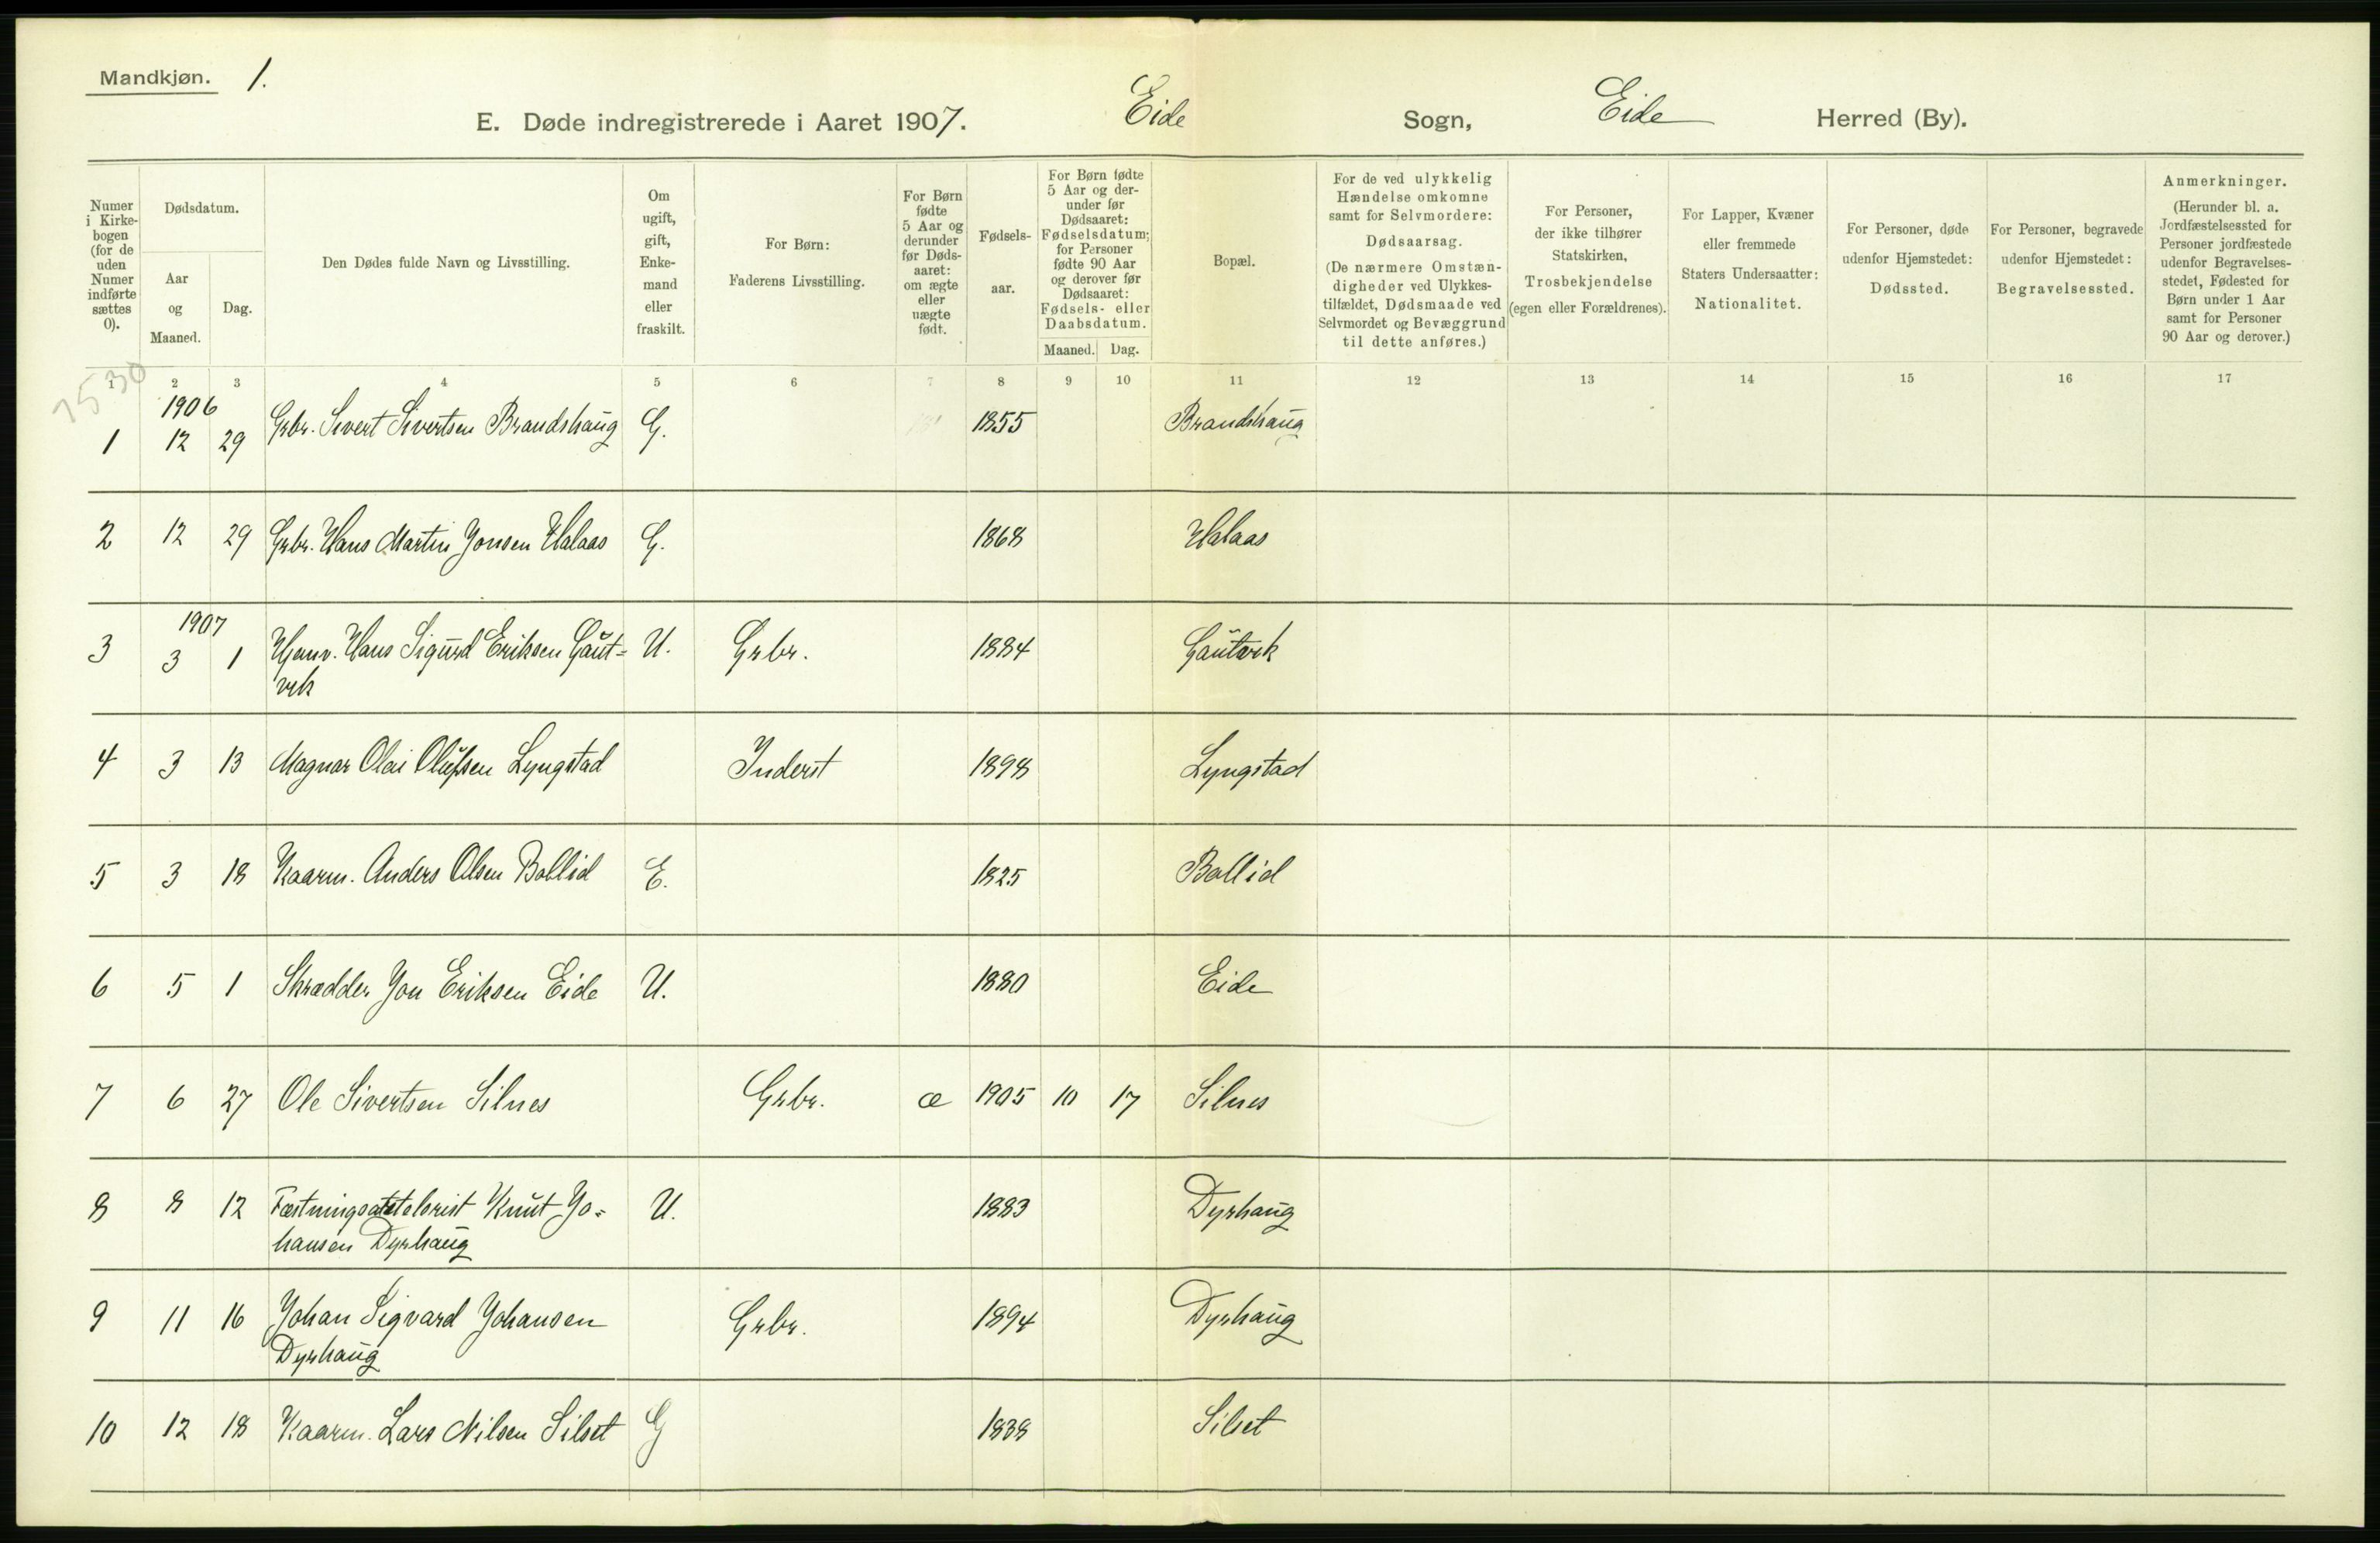 Mandkjøn. 1.
E. Døde indregistrerede i Aaret 1907. Eide Sogn, Eide Herred (By).
Numer i Kirkebogen (for de uden Numer indførte sættes 0).
Dødsdatum.
Aar og Maaned.
Dag.
Den Dødes fulde Navn og Livsstilling.
Om ugift, gift, Enkemand eller fraskilt.
For Børn: Faderens Livsstilling.
For Børn fødte 5 Aar og derunder før Dødsaaret: om ægte eller uægte født.
Fødselsaar.
For Børn fødte 5 Aar og derunder før Dødsaaret: Fødselsdatum; for Personer fødte 90 Aar og derover før Dødsaaret: Fødsels- eller Daabsdatum.
Maaned. Dag.
Bopæl.
For de ved ulykkelig Hændelse omkomne samt for Selvmordere: Dødsaarsag. (De nærmere Omstændigheder ved Ulykkestilfældet, Dødsmaade ved Selvmordet og Bevæggrund til dette anføres.)
For Personer, der ikke tilhører Statskirken, Trosbekjendelse (egen eller Forældrenes).
For Lapper, Kvæner eller fremmede Staters Undersaatter: Nationalitet.
For Personer, døde udenfor Hjemstedet: Dødssted.
For Personer, begravede udenfor Hjemstedet: Begravelsessted.
Anmerkninger. (Herunder bl. a. Jordfæstelsessted for Personer jordfæstede udenfor Begravelsesstedet, Fødested for Børn under 1 Aar samt for Personer 90 Aar og derover.)
1 2 3 4 5 6 7 8 9 10 11 12 13 14 15 16 17
7530
1906
1 12 29 Grbr. Sivert Sivertsen Brandshaug G. 1855 Brandshaug
2 12 29 Grbr. Hans Martin Jonsen Halaas G. 1868 Halaas
1907
3 3 1 Hans Sigurd Eriksen Gaut= U. Grbr. 1884 Gautvik
vik
4 3 13 Magnar Olai Olufsen Lyngstad Inderst 1898 Lyngstad
5 3 18 Kaarm. Anders Olsen Bollid E. 1825 Bollid
6 5 1 Skrædder Jon Eriksen Eide U. 1880 Eide
7 6 27 Ole Sivertsen Silnes Grbr. æ 1905 10 17 Silnes
8 8 12 Knut Jo= U. 1883 Dyrhaug
hansen Dyrhaug
9 11 16 Johan Sigvard Johansen Grbr. 1894 Dyrhaug
Dyrhaug
10 12 18 Kaarm. Lars Nilsen Silset G 1838 Silset